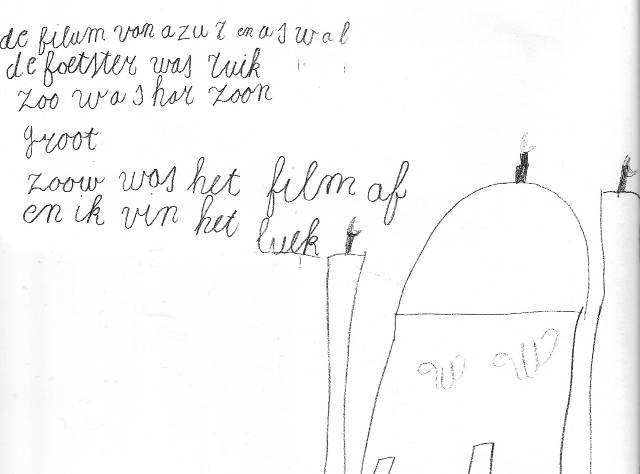 de filum van azur en aswal
de foetster was ruik
zoo was har zoon
groot
zoow was het film af
en ik vin het luek